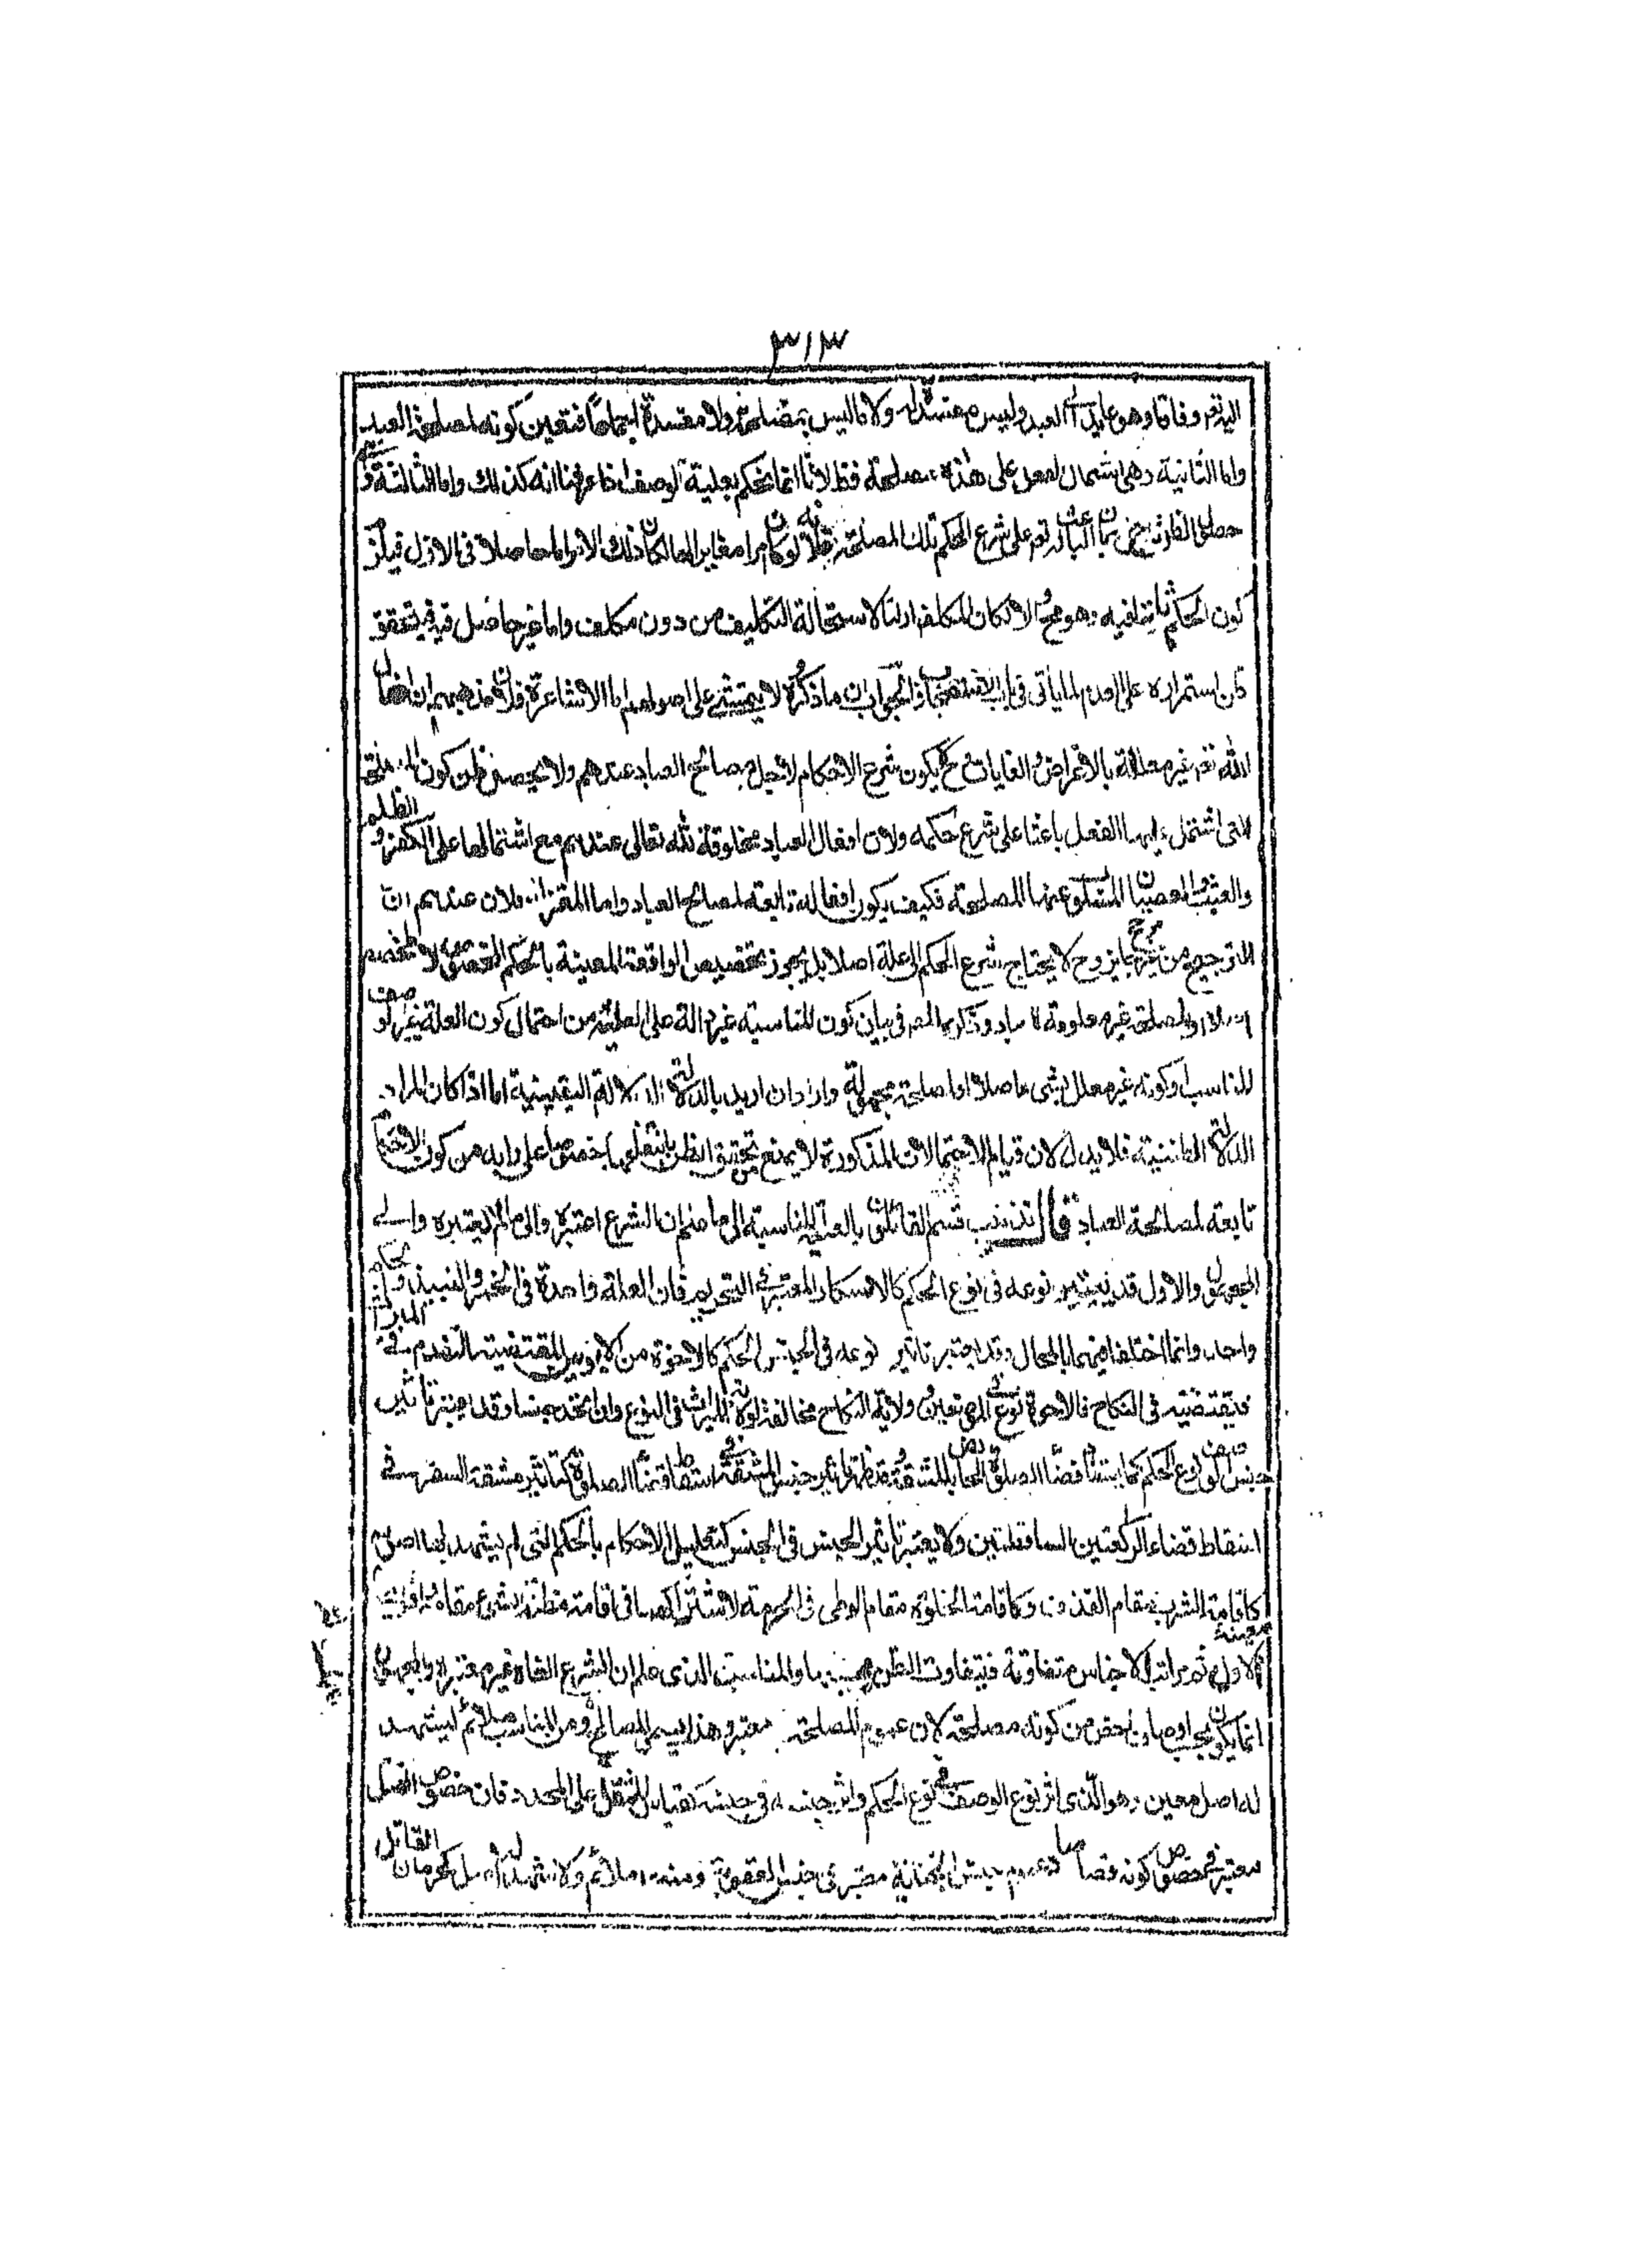 ٣١٣
اليه تعم وفاقا وهو عايد الى العبد وليس مفسدة له ولا ما ليس بمصلحة ولا مفسدة اجماعا فتعين كونه لمصلحة العبد
واما الثانية وهى اشتمال الفعل على هذه المصلحة فظ لانا انما نحكم بعلية الوصف اذا عرفنا انه كذلك واما الثالثة
حصول الظن بان الباعث له تعم على شرع الحكم تلك المصلحة فلانه لو كان امرا مغايرا لها لكان ذلك الامر اما حاصلا فى الازل فيلزم
كون الحكم ثابتا فيه وهو مح الا لكان المكلف ازليا لاستحالة التكليف من دون مكلف واما غير حاصل فيه فيتحقق
ظن استمراره على العدم لما يأتى فى باب الاستصحاب والجواب ان ما ذكره لا يتمشى على اصولهم اما الاشاعرة فلان مذهبهم ان افعال
الله تعم غير معللة بالاغراض والغايات فح لا يكون شرع الاحكام لاجل مصالح العباد عندهم ولا يحصل ظن كون المصلحة
التى اشتمل عليها الفعل باعثا على شرع حكمه ولان افعال العباد مخلوقة لله تعالى عندهم مع اشتمالها على الكفر والظلم
والعبث والعصيان المنفك عنها المصلحة فكيف يكون افعاله تابعة لمصالح العباد واما المعتزلة فلان عندهم ان
الترجيح من غير مرجح جايز وح لا يحتاج شرع الحكم الى علة اصلا بل يجوز تخصيص الواقعة المعينة بالحكم المخصوص لا لمخصص
او لامر ومصلحة غير معلومة للعباد وذكر المصر فى بيان كون المناسبة غير دالة على العلية من احتمال كون العلة غير الوصف
المناسب وكونه غير معلل بشىء اصلا او لمصلحة مجهولة وارد ان اريد بالدلالة الدلالة اليقينية اما اذا كان المراد
الدلالة الظنية فلا يدل لان قيام الاحتمالات المذكورة لا يمنع من تحقق الظن بانتفائها خصوصا على رايه من كون الاحكام
تابعة لمصالح العباد قال تذنيب قسم القائلون بالعلية المناسبة الى ما علم ان الشرع اعتبره والى ما لم يعتبره والى
المجهول والاول قد يعتبر نوعه فى نوع الحكم كالاسكار المعتبر فى التحريم فان العلة واحدة فى الخمر والنبيذ والحكم
واحد وانما اختلفا فيهما بالمحال وقد اعتبر تاثير نوعه فى الجنس الحكم كالاخوة من الابوين المقتضية التقدم فى الميراث
فيقتضيه فى النكاح فالاخوة نوع فى الموضعين وولاية النكاح مخالفة لولاية الميراث فى النوع وان اتحد جنسا وقد اعتبر تاثير
جنس الوصف فى نوع الحكم كما يستند قضاء الصلوة الحايض للمشقة فقد ظهر تاثير جنس المشقة فى اسقاط قضاء الصلوة كتاثير مشقة السفر فى
اسقاط قضاء الركعتين الساقطتين ولا يعتبر تاثير الجنس فى الجنس كتعليل الاحكام بالحكم التى لم يشهد لها اصل معين
كاقامة الشرب مقام القذف وكاقامة الخلوة مقام الوطى فى الحرمة لاشتراكهما فى اقامة مظنة الشىء مقامه
الاول ثم مراتب الاجناس متفاوتة فيتفاوت الظن بحسبها والمناسبة الذى علم ان الشرع الغاه غير معتبر والمجهول
انما يكون بحسب اوصاف اخص من كونه مصلحة لان عموم المصلحة معتبر وهذا يسمى المصالح ومن المناسب ملائم يشهد
له اصل معين وهو الذى اثر نوع الوصف فى نوع الحكم واثر جنسه فى جنسه كقياس المثقل على المحدد فان خصوص القتل
معتبر فى خصوص كونه قصاصا وعموم جنس الجناية معتبر فى جنس العقوبة ومنه ملائم ولا يشهد له اصل كحرمان القاتل